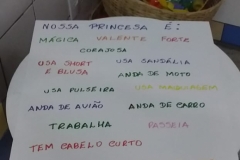 NOSSA PRINCESA É:
MÁGICA VALENTE FORTE
CORAJOSA
USA SHORT E BLUSA USA SANDÁLIA
ANDA DE MOTO
USA PULSEIRA USA MAQUIAGEM
ANDA DE AVIÃO ANDA DE CARRO
TRABALHA PASSEIA
TEM CABELO CURTO